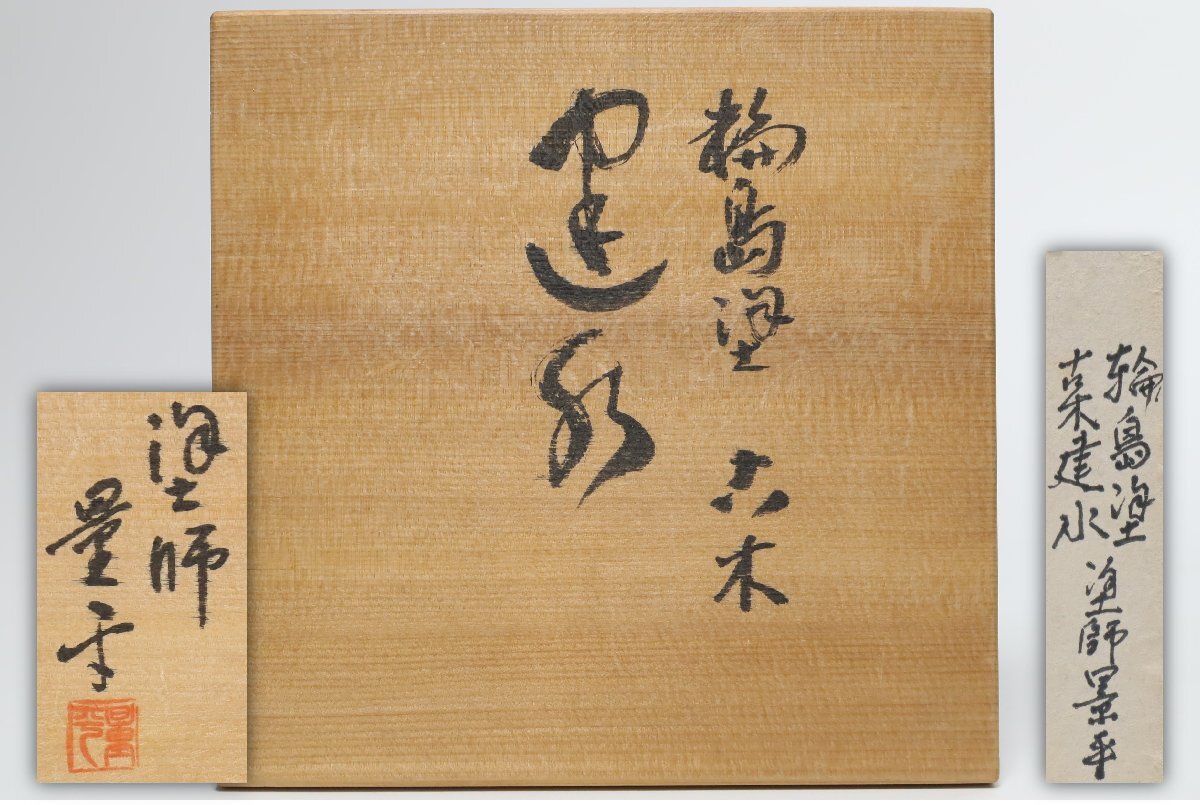 輪島塗 古木
建水
塗師
量平
輪島塗 塗師景平
古木建水